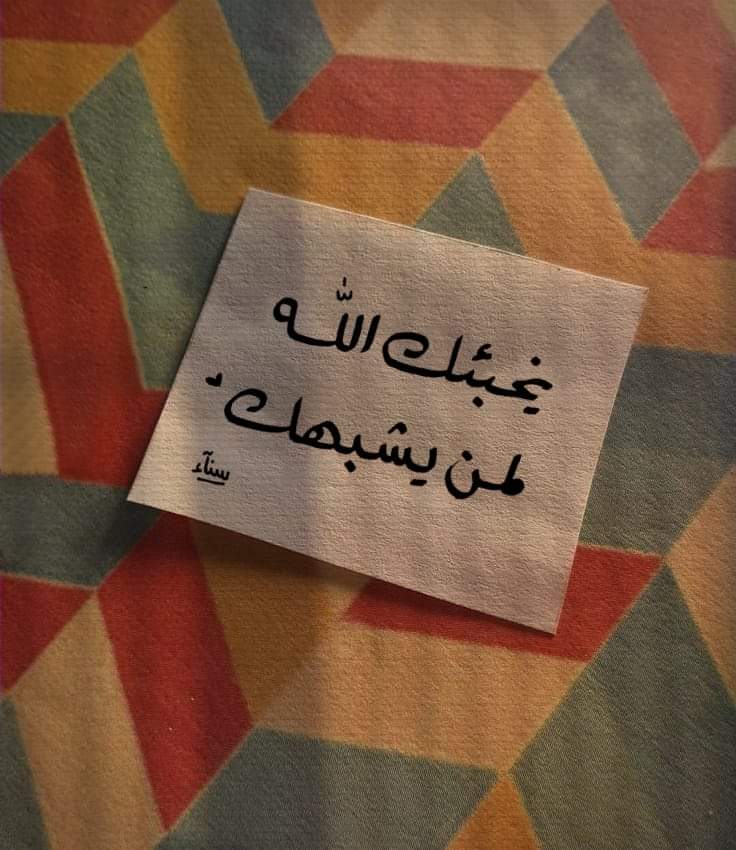 يخبئك اللّٰه
لمن يشبهك
سنآء